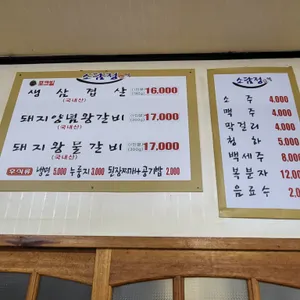 소담정
생 삼 겹 살 16,000
(국내산)
돼지양념왕갈비 17,000
(국내산)
돼지왕불갈비 17,000
(국내산)
후식류 냉면 5,000 누룽지 3,000 된장찌개+공기밥 2,000
소담정
소 주 4,000
맥 주 4,000
막걸리 4,000
청 하 5,000
백세주 8,000
복분자 12,00
음료수 2,0